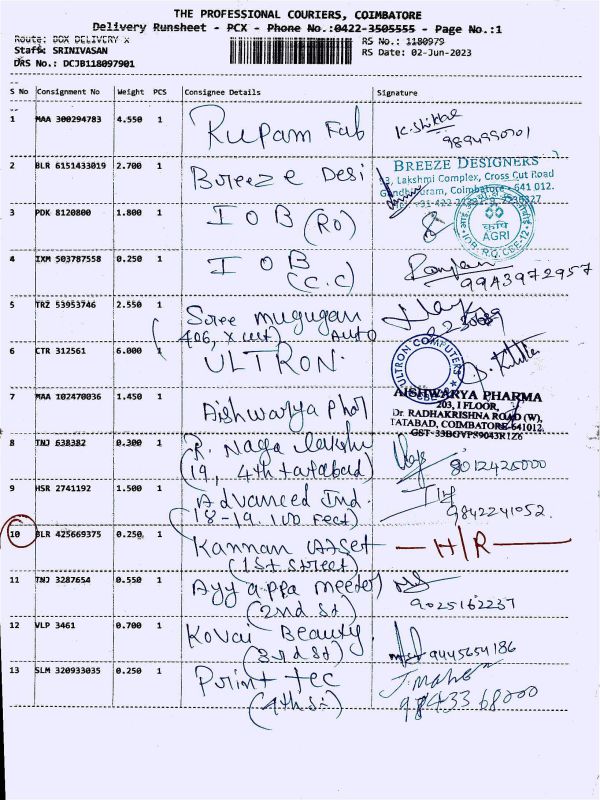 THE PROFESSIONAL COURIERS, COIMBATORE
Delivery Runsheet - PCX - Phone No.:0422-3505555 - Page No.:1
Route: BOX DELIVERY X
Staff: SRINIVASAN
DRS No.: DCJB118097901
RS No.: 1180979
RS Date: 02-Jun-2023
S No Consignment No Weight PCS Consignee Details Signature
1 MAA 300294783 4.550 1 Rupam Fab
9894990701
2 BLR 6151433019 2.700 1 Breeze Desi
BREEZE DESIGNERS
93, Lakshmi Complex, Cross Cut Road
Gandhipuram, Coimbatore - 641 012.
3 PDK 8120800 1.800 1 IOB (RO)
कृषि
AGRI
4 IXM 503787558 0.250 1 IOB
(C.C)
9943972957
5 TRZ 53953746 2.550 1 Sree mugugan
406, X cut) Auto
6 CTR 312561 6.000 1 ULTRON.
ULTRON COMPUTERS
7 MAA 102470036 1.450 1 Aishwarya phar
AISHWARYA PHARMA
203, I FLOOR,
Dr. RADHAKRISHNA ROAD (W),
TATABAD, COIMBATORE-641012.
GST-33BGVPS9043R1Z6
8 TNJ 638382 0.300 1 R. Naga lakshi
(19, 4th tatabad)
8012425000
9 HSR 2741192 1.500 1 Advanced Ind.
(18-19. 100 Feet)
9842241052
10 BLR 425669375 0.250 1 Kannan Asset
(1st street)
H/R
11 TNJ 3287654 0.550 1 Ayyappa meeter
(2nd st)
9025162237
12 VLP 3461 0.700 1 Kovai Beauty
(3rd st)
9445654186
13 SLM 320933035 0.250 1 Print tec
(4th st)
J. mahe
9843368000